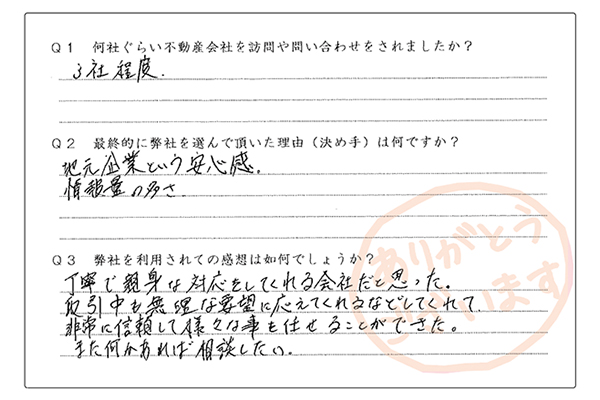 Q1 何社ぐらい不動産会社を訪問や問い合わせをされましたか?
3社程度.
Q2 最終的に弊社を選んで頂いた理由(決め手)は何ですか?
地元企業という安心感.
情報量の多さ
Q3 弊社を利用されての感想は如何でしょうか?
丁寧で親身な対応をしてくれる会社だと思った。
取引中も無理な要望に応えてくれるなどしてくれて、
非常に信頼して様々な事を任せることができた。
また何かあれば相談したい.
ありがとう
ございます